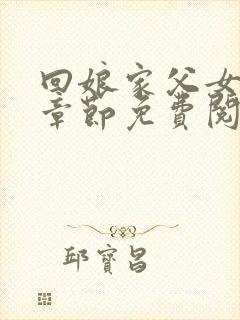 回娘家父女
章節免費閱
邱寶昌